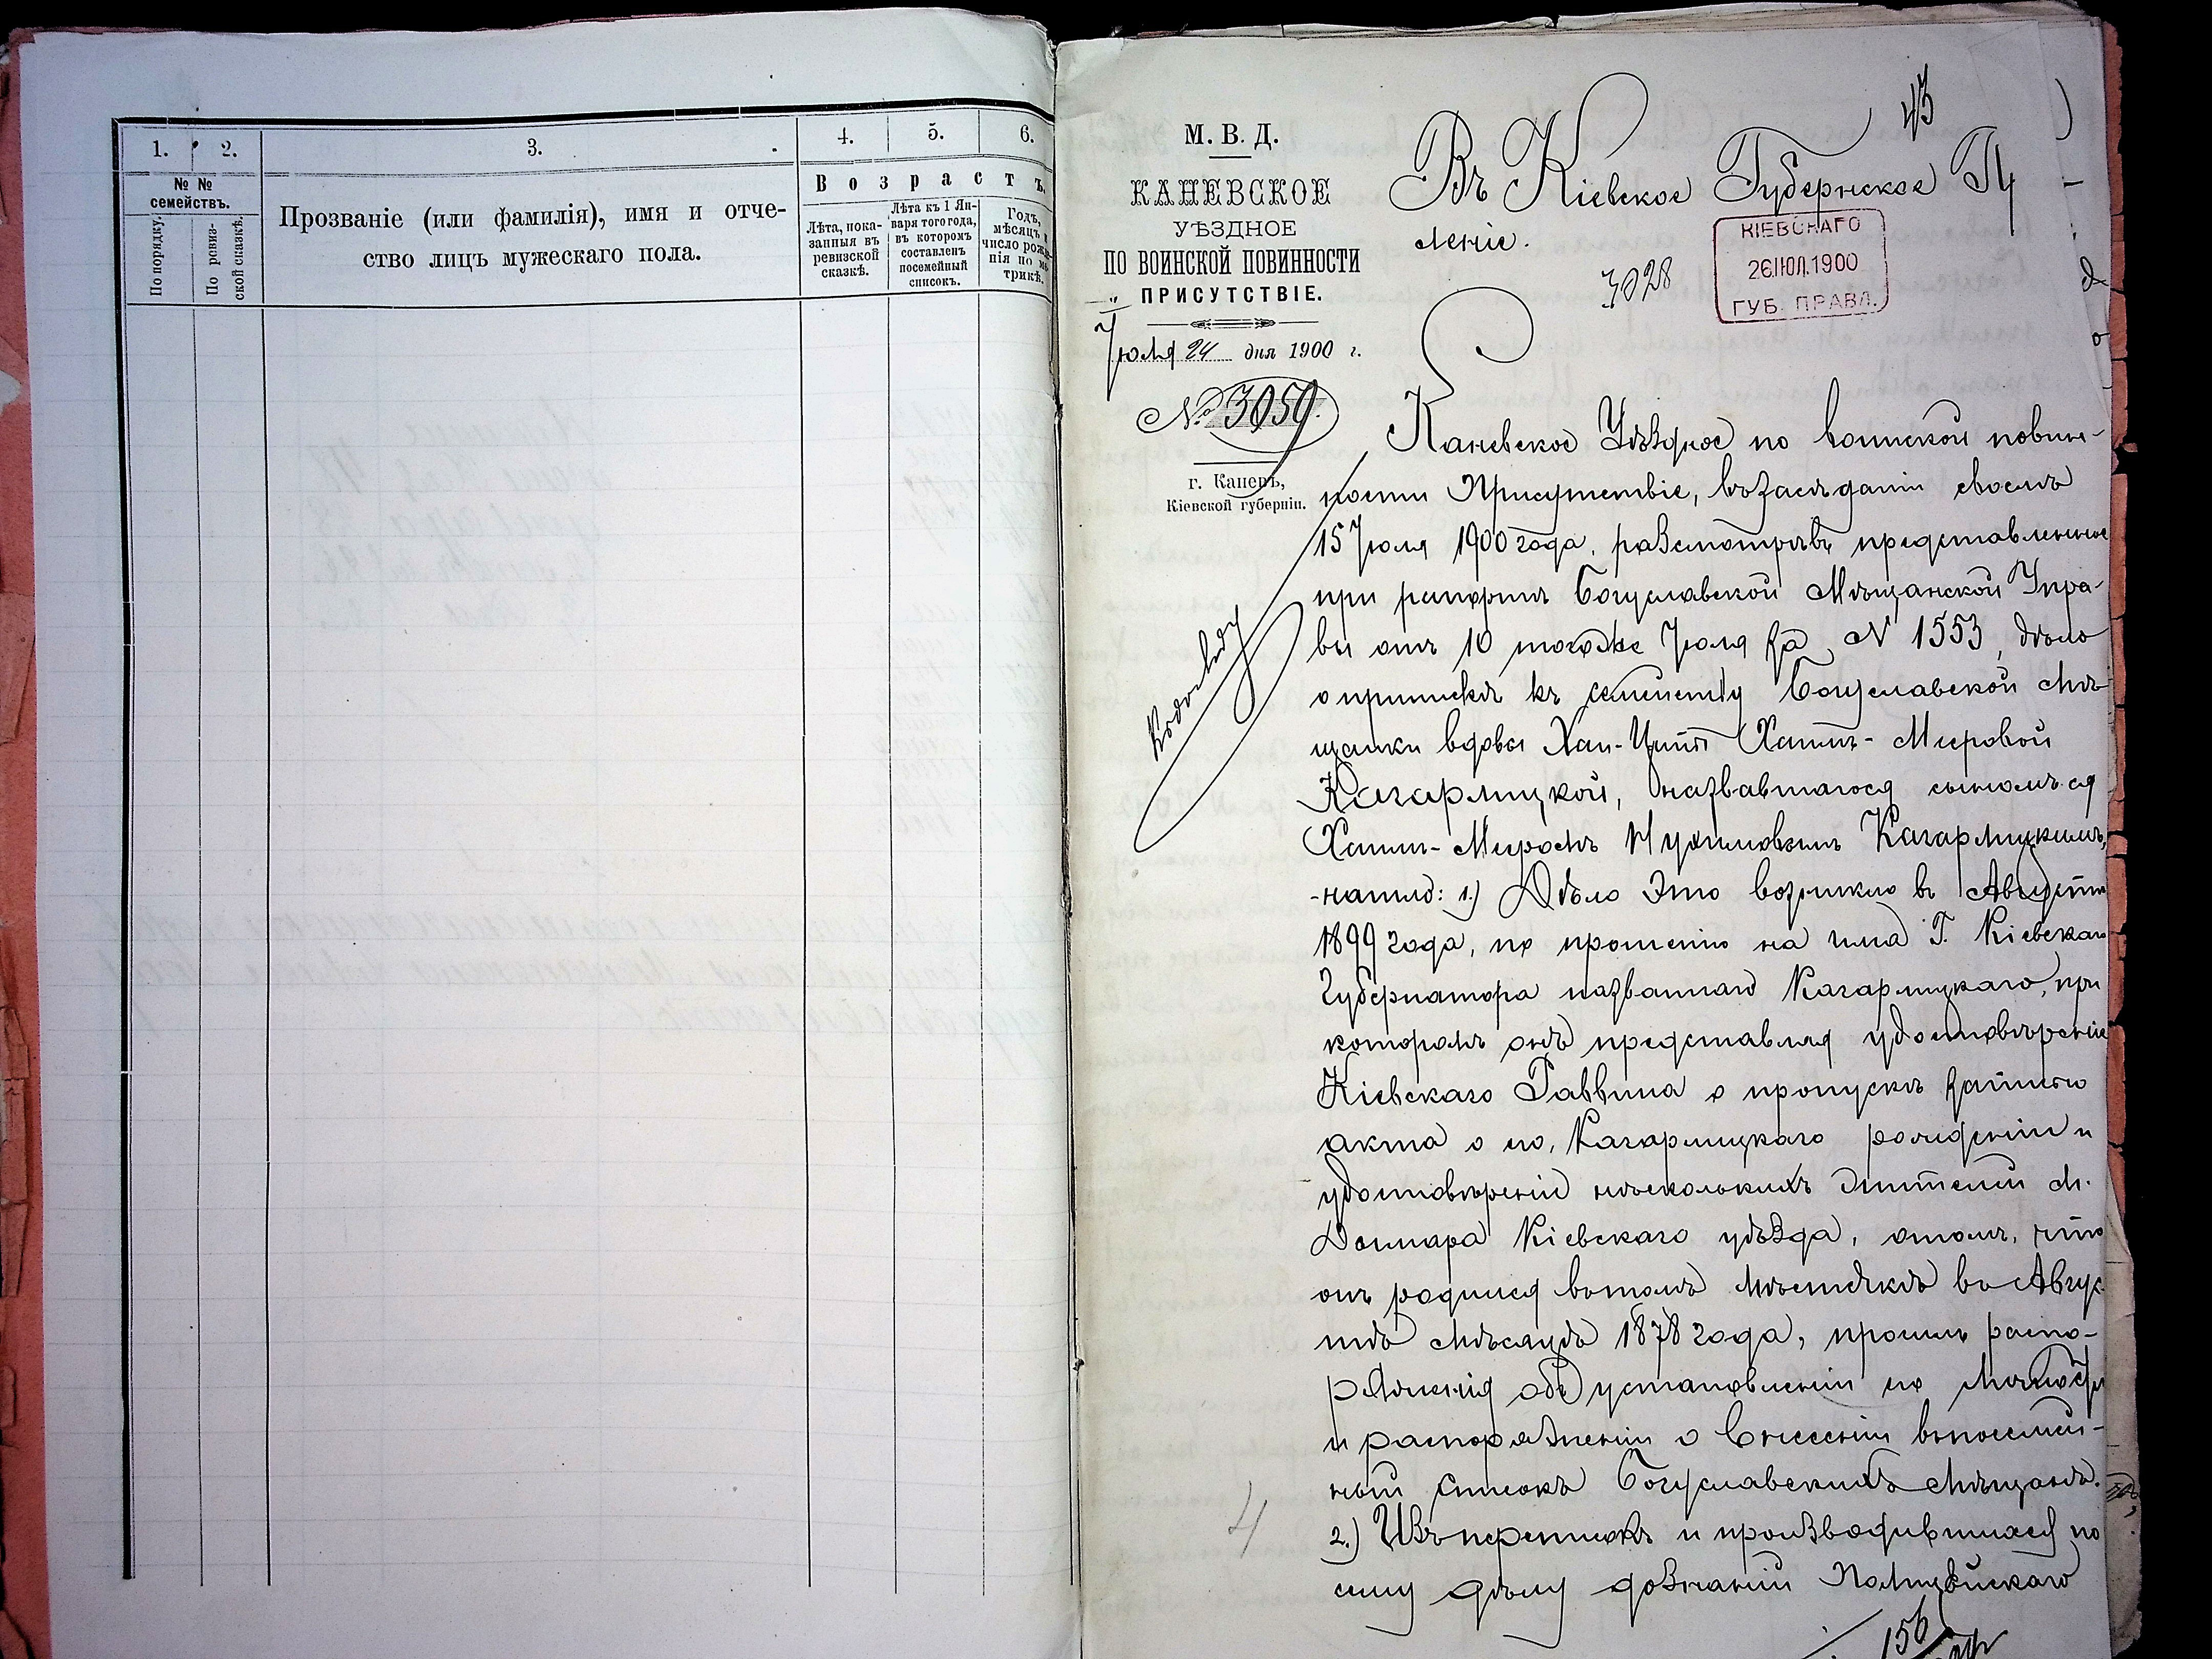 1. 2. 3. 4. 5. 6.
№ № семействъ.
По порядку.
По ревиз-
ской сказкѣ.
Прозваніе (или фамилія), имя и отче-
ство лицъ мужескаго пола.
Возрастъ.
Лѣта, пока-
занныя въ
ревизской
сказкѣ.
Лѣта къ 1 Ян-
варя того года,
въ которомъ
составленъ
посемейный
списокъ.
Годъ,
мѣсяцъ и
число рожде-
нія по ме-
трикѣ.
43
М. В. Д.
КАНЕВСКОЕ
УѢЗДНОЕ
ПО ВОИНСКОЙ ПОВИННОСТИ
ПРИСУТСТВІЕ.
Іюля 24 дня 1900 г.
№ 3059.
г. Каневъ,
Кіевской губерніи.
Въ Кіевское Губернское П
леніе.
3028
КІЕВСКАГО
26 ІЮЛ. 1900
ГУБ. ПРАВЛ.
Каневское Уѣздное по воинской повин-
ности Присутствіе, въ засѣданіи своемъ
15 Іюля 1900 года, разсмотрѣвъ представленное
при рапортѣ Богуславской Мѣщанской Упра-
вы отъ 10 того же Іюля за № 1553, дѣло
о припискѣ къ семейству Богуславской мѣ-
щанки вдовы Хаи-Ципы Хаимъ-Мееровой
Кагарлицкой, назвавшагося сыномъ ея
Хаимъ-Мееромъ Нухимовымъ Кагарлицкимъ,
-нашло: 1.) Дѣло это возникло въ Августѣ
1899 года, по прошенію на имя Г. Кіевскаго
Губернатора названнаго Кагарлицкаго, при
которомъ онъ представляя удостовѣреніе
Кіевскаго Раввина о пропускѣ записью
акта о его, Кагарлицкаго рожденіи и
удостовѣреніе нѣсколькихъ жителей м.
Кіевскаго уѣзда, о томъ, что
онъ родился въ томъ мѣстечкѣ въ Авгус-
тѣ мѣсяцѣ 1878 года, просилъ распо-
ряженія объ установленіи его
и распоряженіи о внесеніи въ посемей-
ный списокъ Богуславскихъ мѣщанъ.
2.) Изъ переписокъ и производившихся по
сему дѣлу дознаній Полицейскаго
4
156